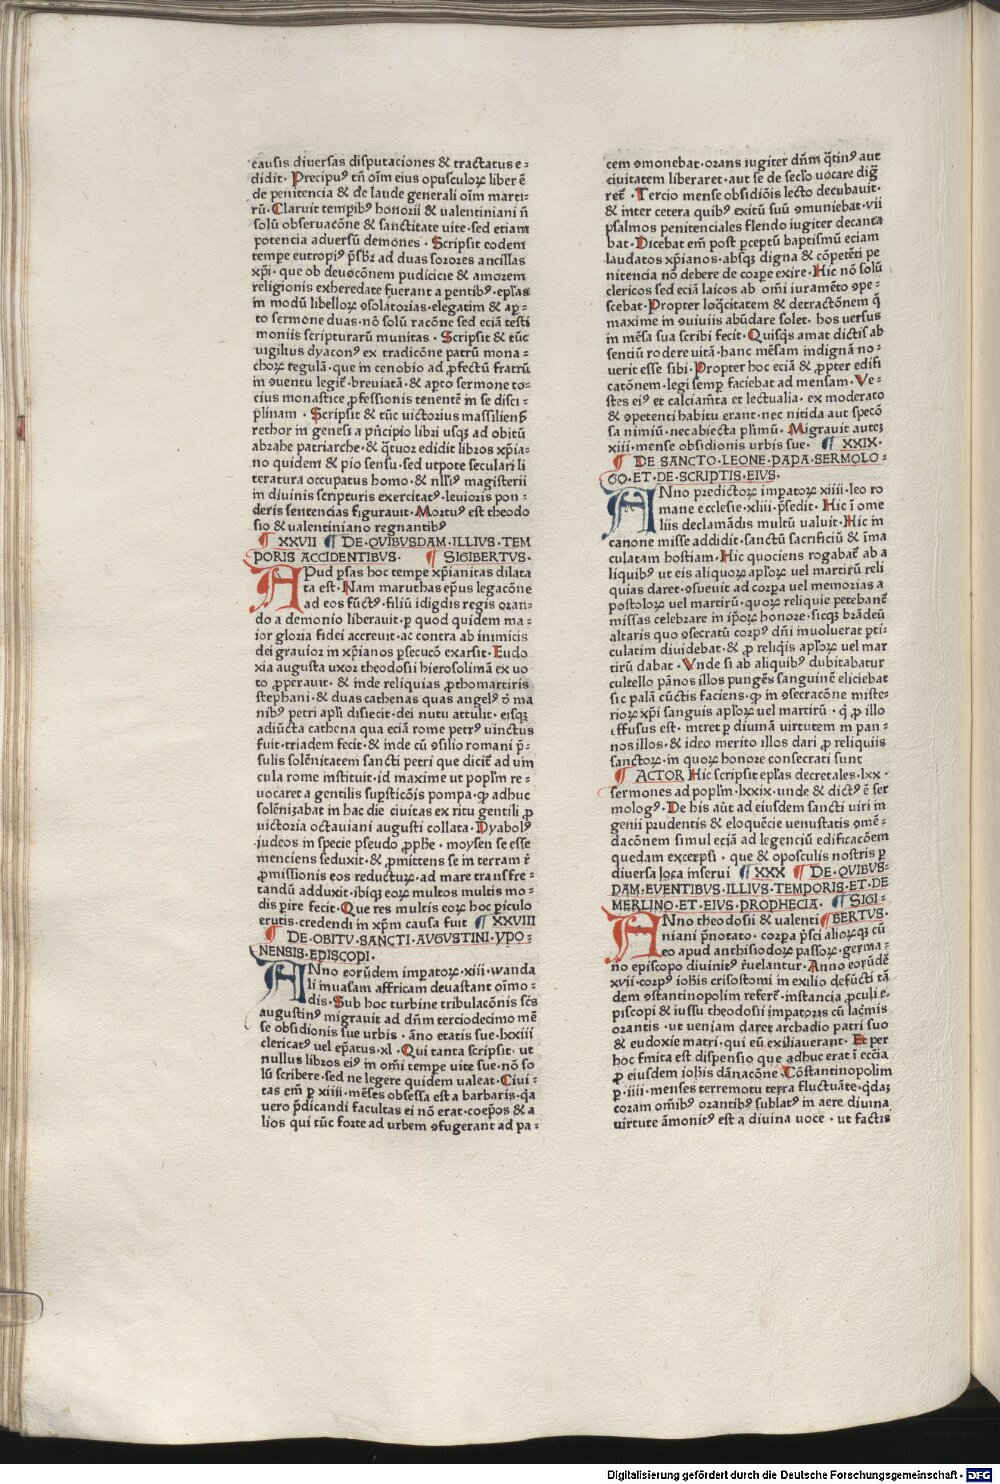 causis diuersas disputaciones & tractatus e⸗
didit · Precipuꝰ tñ oīm eius opusculoꝝ liber ē
de penitencia & de laude generali oīm marti⸗
rū · Claruit tempibꝰ honorii & ualentiniani ñ
solū obseruacōne & sanctitate uite · sed etiam
potencia aduersū demones · Scripsit eodem
tempe eutropiꝰ p̄sbr̄ ad duas sorores ancillas
xp̄i · que ob deuocōnem pudicicie & amorem
religionis exheredate fuerant a ꝑentibꝰ · ep̄las
in modū libelloꝝ ꝯsolatorias · elegatim & ap⸗
to sermone duas · nō solū racōne sed eciā testi
moniis scripturarū munitas · Scripsit & tūc
uigilius dyaconꝰ ex tradicōne patrū mona⸗
choꝝ regulā · que in cenobio ad ꝓfectū fratrū
in ꝯuentu legit̄ · breuiatā & apto sermone to⸗
cius monastice ꝓfessionis tenentē in se disci⸗
plinam · Scripsit & tūc uictorius massilienẜ
rethor in genesi a p̄ncipio libri usqꝫ ad obitū
abrahe patriarche · & q̄tuor edidit libros xp̄ia⸗
no quidem & pio sensu · sed utpote seculari li
teratura occupatus homo · & nllīꝰ magisterii
in diuinis scripturis exercitatꝰ · leuioris pon⸗
deris sentencias figurauit · Mortuꝰ est theodo
sio & ualentiniano regnantibꝰ
¶ XXVII ¶ DE·QVIBVSDAM·ILLIVS·TEM
PORIS ACCIDENTIBVS· ¶ SIGIBERTVS·
APud ꝑsas hoc tempe xp̄ianitas dilata
ta est · Nam maruthas ep̄us legacōne
ad eos fūctꝰ · filiū idigdis regis oran⸗
do a demonio liberauit · ꝑ quod quidem ma⸗
ior gloria fidei accreuit · ac contra ab inimicis
dei grauior in xp̄ianos ꝑsecucō exarsit · Eudo
xia augusta uxor theodosii hierosolimā ex uo
to ꝓperauit · & inde reliquias ꝓthomartiris
stephani · & duas cathenas quas angelꝰ d̄ ma
nibꝰ petri apl̄i disiecit · dei nutu attulit · eisqꝫ
adiūcta cathena qua eciā rome petrꝰ uinctus
fuit · triadem fecit · & inde cū ꝯsilio romani p̄⸗
sulis solēnitatem sancti petri que dicit̄ ad uin
cula rome instituit · id maxime ut popl̄m re⸗
uocaret a gentilis sup̄sticōis pompa · ꝙ adhuc
solēnizabat in hac die ciuitas ex ritu gentili ꝓ
uictoria octauiani augusti collata · Dyabolꝰ
iudeos in specie pseudo ꝓphe · moysen se esse
menciens seduxit · & ꝓmittens se in terram r̄
ꝓmissionis eos reducturꝫ · ad mare transfre⸗
tandū adduxit · ibiqꝫ eoꝝ multos multis mo⸗
dis ꝑire fecit · Que res multis eoꝝ hoc ꝑiculo
erutis · credendi in xp̄m causa fuit ¶ XXVIII
¶ DE·OBITV·SANCTI·AVGVSTINI·YPO⸗
NENSIS·EPISCOPI·
ANno eorūdem impatoꝝ · xiii · wanda
li inuasam affricam deuastant oīmo⸗
dis · Sub hoc turbine tribulacōnis sc̄s
augustinꝰ migrauit ad dn̄m terciodecimo mē
se obsidionis sue urbis · āno etatis sue · lxxiii
clericatꝰ uel ep̄atus · xl · Qui tanta scripsit · ut
nullus libros eiꝰ in om̄i tempe uite sue · nō so
lū scribere · sed ne legere quidem ualeat · Ciui⸗
tas em̄ ꝑ xiiii · mēses obsessa est a barbaris · qa
uero p̄dicandi facultas ei nō erat · coep̄os & a
lios qui tūc forte ad urbem ꝯfugerant ad pa⸗
cem ꝯmonebat · orans iugiter dn̄m q̄tinꝰ aut
ciuitatem liberaret · aut se de sec̄lo uocare dig̃
ret̄ · Tercio mense obsidiōis lecto decubauit ·
& inter cetera quibꝰ exitū suū ꝯmuniebat · vii
psalmos penitenciales flendo iugiter decanta
bat · Dicebat em̄ post ꝑceptū baptismū eciam
laudatos xp̄ianos · absqꝫ digna & cōpetēti pe
nitencia nō debere de corꝑe exire · Hic nō solū
clericos sed eciā laicos ab om̄i iuramēto ꝯpe⸗
scebat · Propter loq̄citatem & detractōnem q̄
maxime in ꝯuiuiis abūdare solet · hos uersus
in mēsa sua scribi fecit · Quisq̄s amat dictis ab
sentiū rodere uitā · hanc mēsam indignā no⸗
uerit esse sibi · Propter hoc eciā & ꝓpter edifi
catōnem · legi semꝑ faciebat ad mensam · Ve⸗
stes eiꝰ et calciam̄ta et lectualia · ex moderato
& ꝯpetenti habitu erant · nec nitida aut specō
sa nimiū · nec abiecta pl̄imū · Migrauit autem
xiii · mense obsidionis urbis sue · ¶ XXIX·
¶ DE SANCTO·LEONE·PAPA·SERMOLO⸗
GO·ET·DE·SCRIPTIS·EIVS·
ANno predictoꝝ impatoꝝ xiiii · leo ro
mane ecclesie · xliii · p̄sedit · Hic ī ome
liis declamādis multū ualuit · Hic in
canone misse addidit · sanctū sacrificiū & īma
culatam hostiam · Hic quociens rogabat̄ ab a
liquibꝰ ut eis aliquoꝝ apl̄oꝝ uel martirū reli
quias daret · ꝯsueuit ad corpa uel memorias a
postoloꝝ uel martirū · quoꝝ reliquie petebant̄
missas celebrare in ip̄oꝝ honore · sicqꝫ brādeū
altaris quo ꝯsecratū corpꝰ dn̄i inuoluerat ꝑti⸗
culatim diuidebat · & ꝓ reliq̄is apl̄oꝝ uel mar
tirū dabat · Vnde si ab aliquibꝰ dubitabatur
cultello pānos illos pungēs sanguinē eliciebat
sic palā cūctis faciens · ꝙ in ꝯsecracōne miste⸗
rioꝝ xp̄i sanguis apl̄oꝝ uel martirū · q̄ ꝓ illo
effusus est · intret ꝑ diuinā uirtutem in pan⸗
nos illos · & ideo merito illos dari ꝓ reliquiis
sanctoꝝ · in quoꝝ honore consecrati sunt
¶ ACTOR Hic scripsit ep̄las decretales · lxx ·
sermones ad popl̄m · lxxix · unde & dictꝰ ē ser
mologꝰ · De his aūt ad eiusdem sancti uiri in
genii prudentis & eloquēcie uenustatis ꝯmē⸗
dacōnem simul eciā ad legenciū edificacōem
quedam excerpsi · que & oposculis nostris ꝑ
diuersa loca inserui ¶ XXX ¶ DE·QVIBVS⸗
DAM·EVENTIBVS·ILLIVS·TEMPORIS·ET·DE
MERLINO·ET·EIVS·PROPHECIA· ¶ SIGI⸗
ANno theodosii & ualenti ¶ BERTVS·
niani p̄notato · corpa p̄sci alioꝝqꝫ cū
eo apud anthisiodoꝝ passoꝝ · germa⸗
no episcopo diuinitꝰ r̄uelantur · Anno eorūdē
xvii · corpꝰ ioh̄is crisostomi in exilio defūcti tā
dem ꝯstantinopolim refert̄ · instancia ꝓculi e⸗
piscopi & iussu theodosii impatoris cū lac̄mis
orantis · ut ueniam daret archadio patri suo
& eudoxie matri · qui eū exiliauerant · Et per
hoc finita est dispensio que adhuc erat ī ecc̄ia
ꝓ eiusdem ioh̄is dānacōne · Cōstantinopolim
ꝑ · iiii · menses terremotu terra fluctuāte · q̄daꝫ
coram om̄ibꝰ orantibꝰ sublatꝰ in aere diuina
uirtute āmonitꝰ est a diuina uoce · ut factis
Digitalisierung gefördert durch die Deutsche Forschungsgemeinschaft - DFG